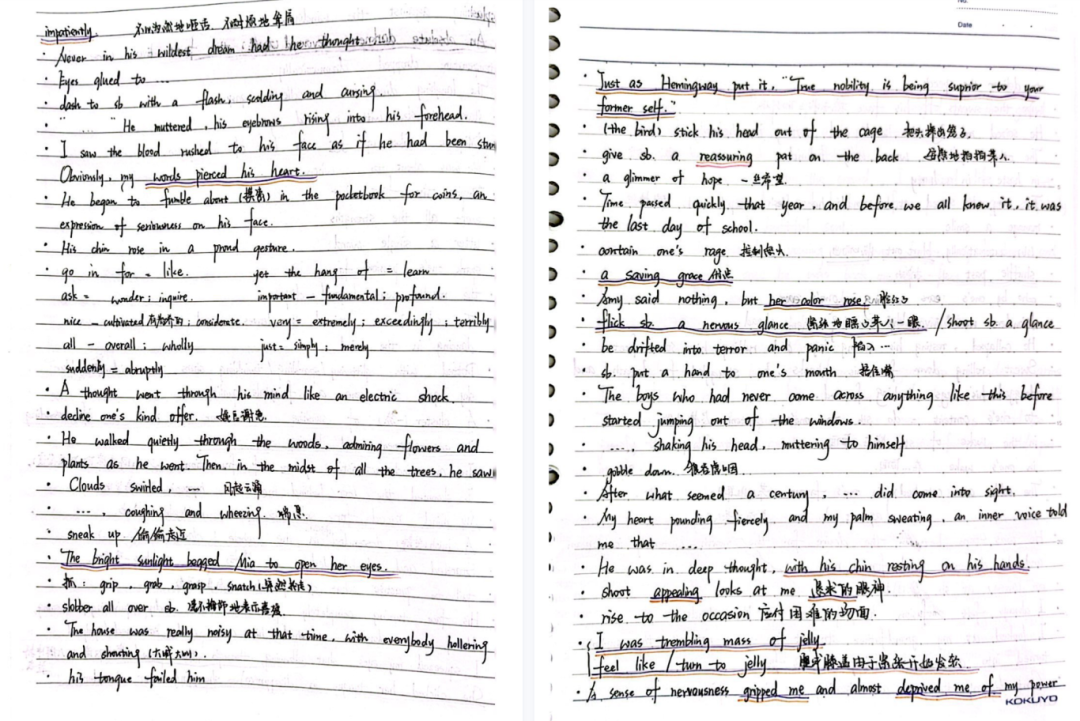 impatiently. 不耐烦地
· Never in his wildest dream had he thought
· Eyes glued to ...
· dash to sb with a flash, scolding and cursing.
· "......" He muttered, his eyebrows rising into his forehead.
· I saw the blood rushed to his face as if he had been stun
Obviously, my words pierced his heart.
· He began to fumble about (摸索) in the pocketbook for coins, an
expression of seriousness on his face.
· His chin rose in a proud gesture.
· go in for = like. get the hang of = learn
ask = wonder; inquire. important - fundamental; profound.
nice - cultivated 有教养的; considerate. very = extremely; exceedingly; terribly
all - overall; wholly just = simply; merely
suddenly = abruptly
· A thought went through his mind like an electric shock.
· decline one's kind offer. 婉言谢绝
· He walked quietly through the woods, admiring flowers and
plants as he went. Then, in the midst of all the trees, he saw
· Clouds swirled, ... 风起云涌
· ..., coughing and wheezing. 喘息
· sneak up 偷偷走近
· The bright sunlight begged Mia to open her eyes.
· 抓: grip, grab, grasp, snatch
· slobber all over sb.
· The house was really noisy at that time, with everybody hollering
and shouting (大喊大叫).
· his tongue failed him
No.
Date
· Just as Hemingway put it, "True nobility is being suprior to your
former self."
· (the bird) stick his head out of the cage 把头探出笼子.
· give sb. a reassuring pat on the back 安慰地拍拍某人
· a glimmer of hope 一丝希望
· Time passed quickly that year, and before we all know it, it was
the last day of school.
· contain one's rage 控制怒火
· a saving grace 优点
· Amy said nothing, but her color rose. 脸红了
· flick sb. a nervous glance 紧张地瞥了某人一眼 / shoot sb. a glance
· be drifted into terror and panic 陷入...
· sb. put a hand to one's mouth 捂住嘴
· The boys who had never come across anything like this before
started jumping out of the windows.
· ..., shaking his head, muttering to himself
· gobble down. 狼吞虎咽
· After what seemed a century, ... did come into sight.
· My heart pounding fiercely and my palm sweating, an inner voice told
me that ...
· He was in deep thought, with his chin resting on his hands.
· shoot appealing looks at me 恳求的眼神
· rise to the occasion 应付困难的场面.
· I was trembling mass of jelly.
feel like / turn to jelly 膝盖由于紧张开始发软
· A sense of nervousness gripped me and almost deprived me of my power
KOKUYO